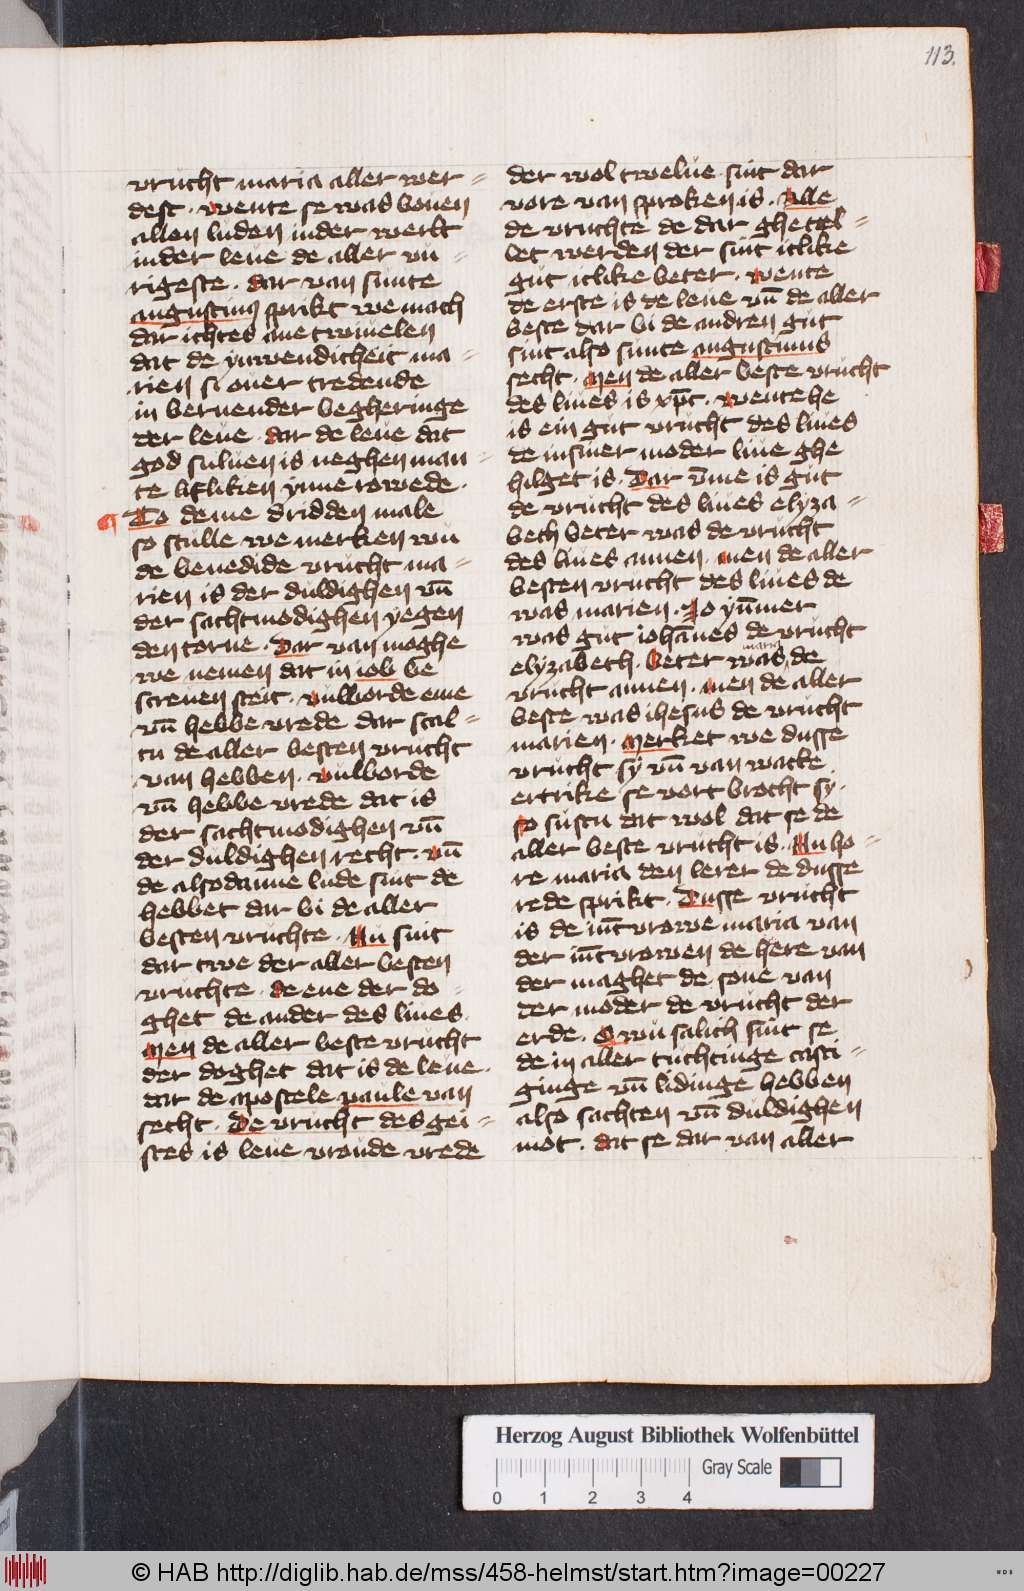 113.
vrucht maria aller wer=
dest. wente se was bouen
allen luden in der werlt
in der leue de aller vu=
rigeste. dar van sunte
augustinus sprikt we mach
dar ichtes ane twiuelen
dat de ynwendicheit ma=
rien si ouer tredende
in bernender begheringe
der leue. dar de leue dat
god suluen is neghen man=
te lifliken ynne rowede.
To deme dridden male
so stulle we merken wu
de benedide vrucht ma=
rien is der duldighen vn̄
der sachtmodighen yegen
den torne. Dar van moghe
we nemen dat in iob be
screuen steit. vulborde eme
vn̄ hebbe vrede dar scal=
tu de aller besten vrucht
van hebben. vulborde
vn̄ hebbe vrede dat is
der sachtmodighen vn̄
der duldighen recht. vn̄
de alsodanne lude sint de
hebbet dar bi de aller
besten vruchte. Nu sint
dar twe der aller besten
vruchte. de ene der do=
ghet de ander des liues.
Men de aller beste vrucht
der doghet dat is de leue.
dar de apostele paule van
secht. De vrucht des gei=
stes is leue vroude vrede
der wol twelue sint dar
vore van sproken is. Alle
de vruchte de dar ghetel=
let werden der sint itlike
gut itlike beter. wente
de erste is de leue vn̄ de aller
beste dar bi de andren gut
sint also sunte augustinus
secht. Men de aller beste vrucht
des liues is xp̄c. wente he
is ein gut vrucht des liues
de in siner moder liue ghe
hilget is. Dar v̄me is gut
de vrucht des liues elyza=
beth beter was de vrucht
des liues annen. men de aller
besten vrucht des liues de
was marien. Jo yn̄mer
was gut ioha̅nes de vrucht
elyzabeth. beter was maria de
vrucht annen. men de aller
beste was ihesus de vrucht
marien. Merket we dusse
vrucht sy vn̄ van wacke
ertrike se vort brocht sy.
so sustu dat wol dat se de
aller beste vrucht is. Nu ho=
re maria den lerer de dusse
rede sprikt. Dusse vrucht
is de iūcvrowe maria van
der iūcvrowen de here van
der maghet de sone van
der moder de vrucht der
erde. O wu salich sint se
de in aller tuchtinge casti=
ginge vn̄ lidinge hebben
also sachten vn̄ duldighen
mot. dat se dar van aller
Herzog August Bibliothek Wolfenbüttel
Gray Scale
0 1 2 3 4
© HAB http://diglib.hab.de/mss/458-helmst/start.htm?image=00227